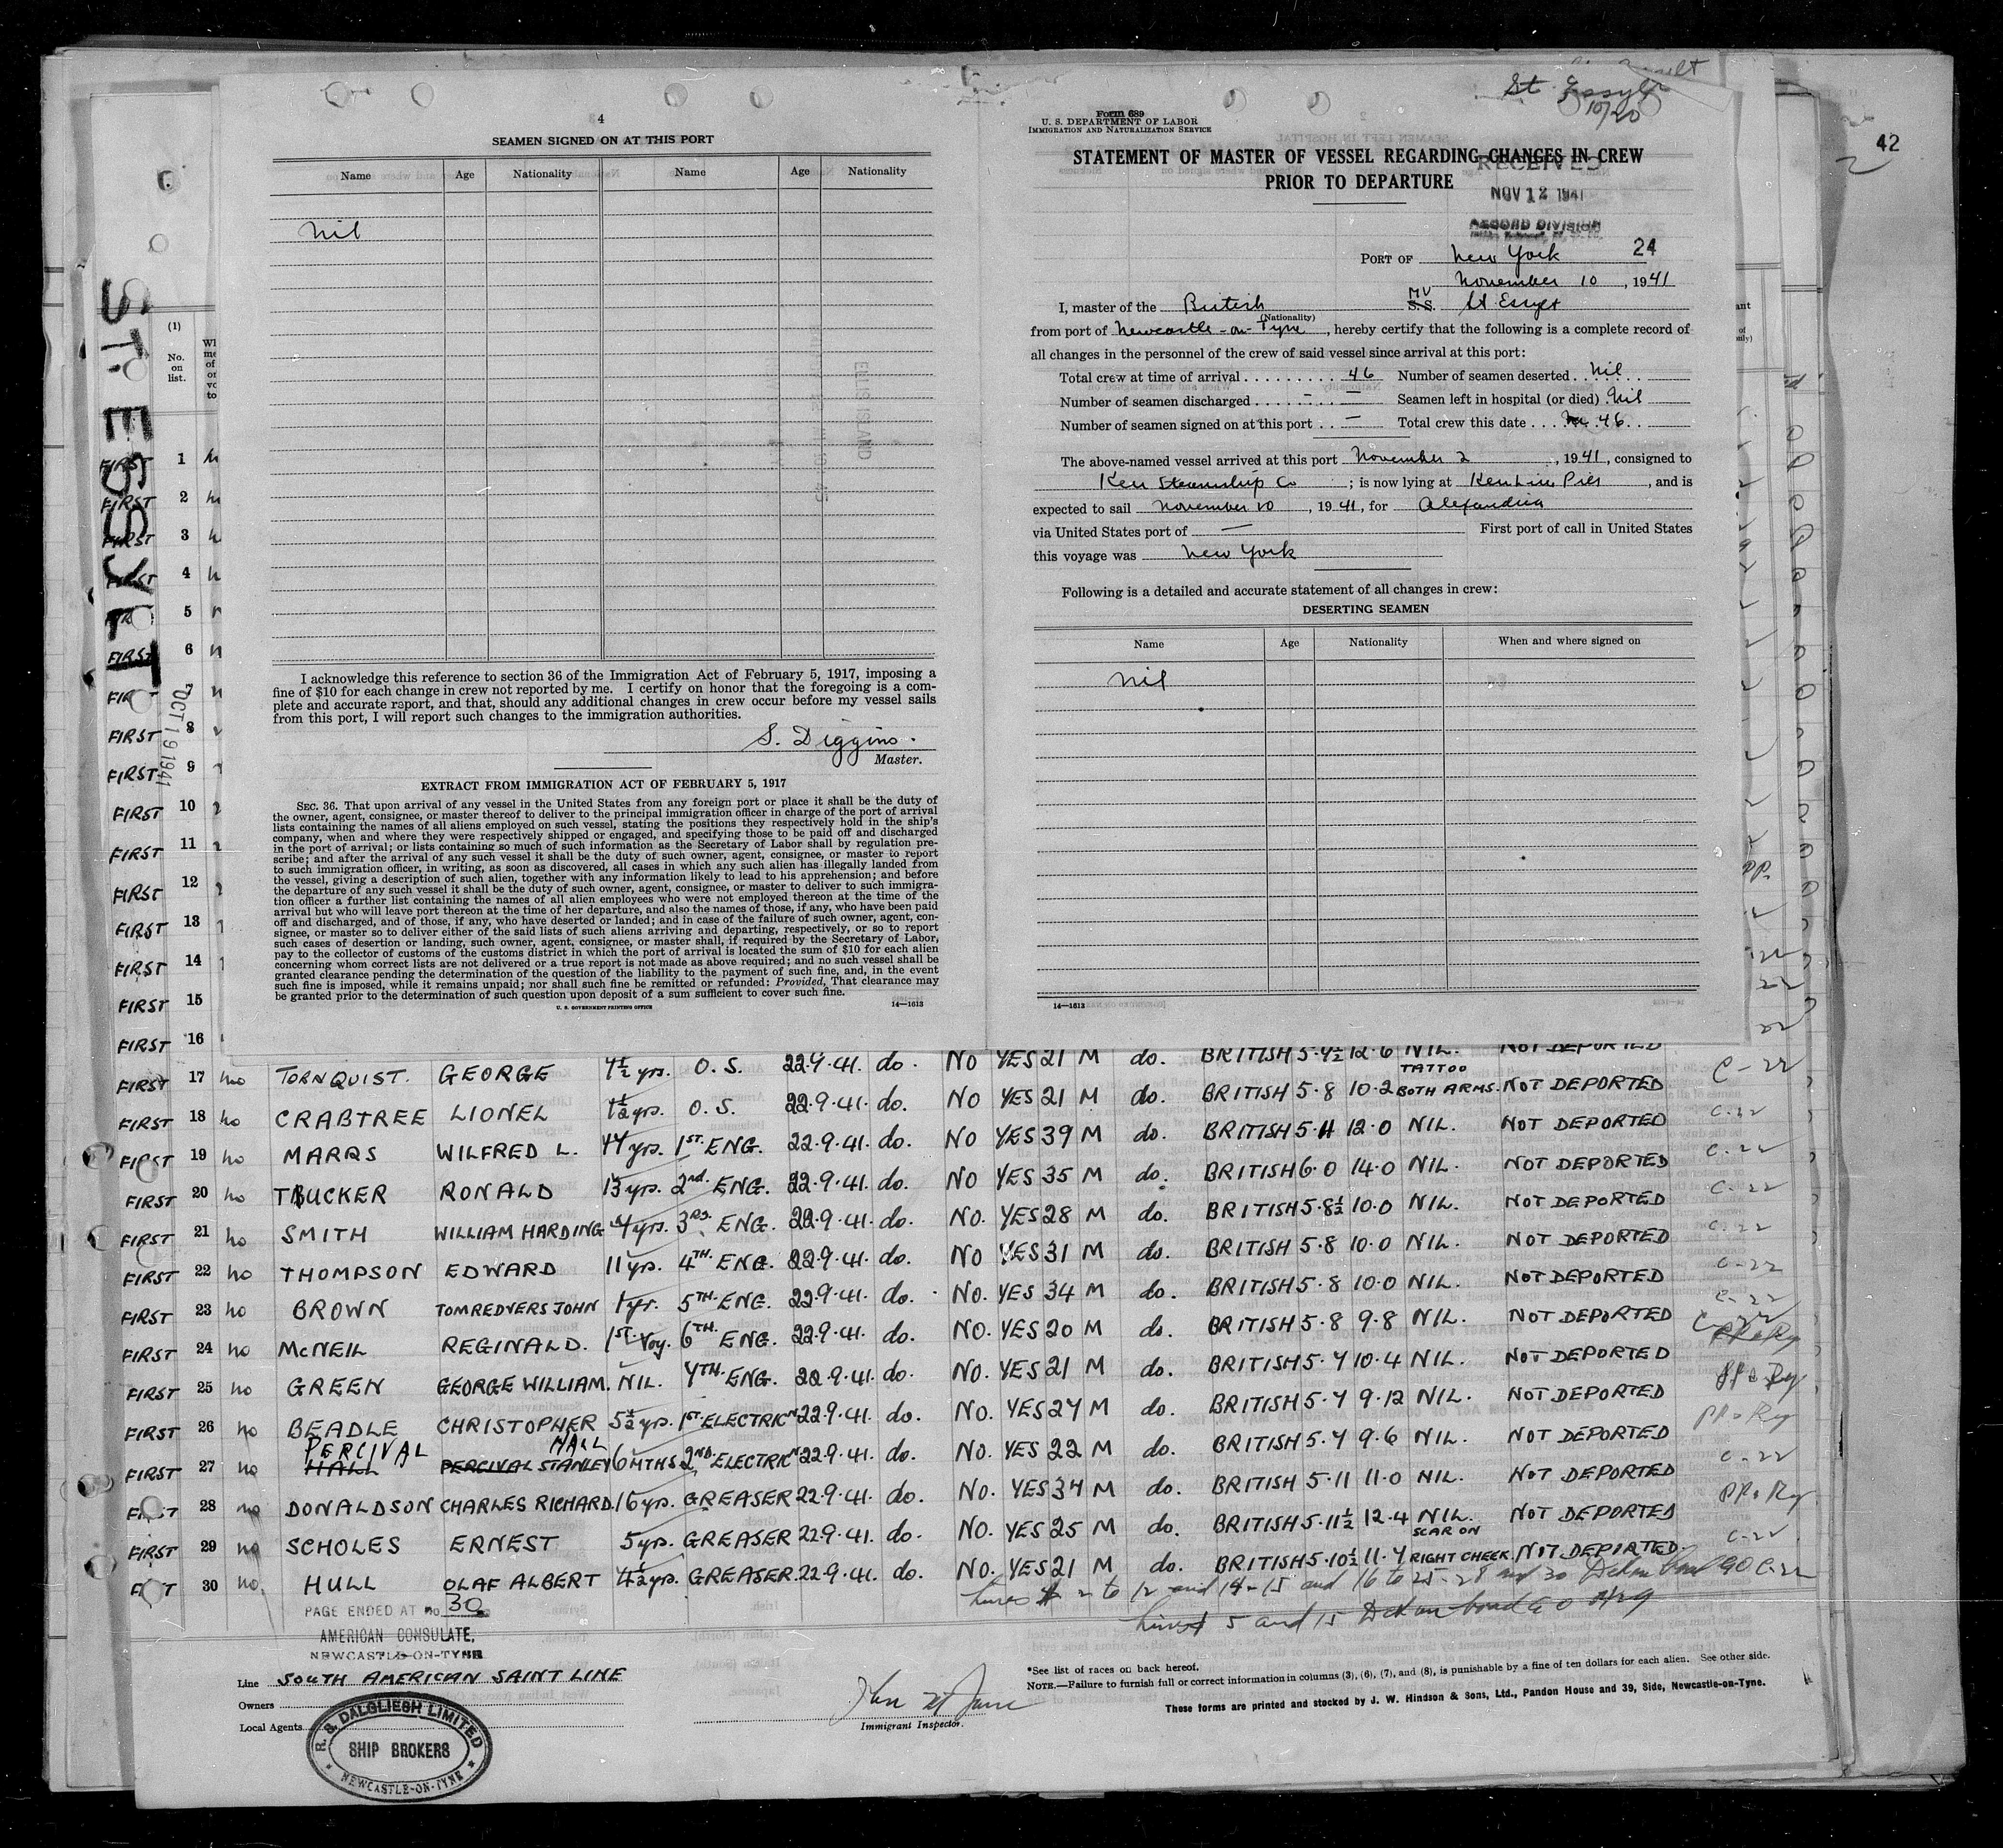 4
SEAMEN SIGNED ON AT THIS PORT
Name Age Nationality Name Age Nationality
Nil
I acknowledge this reference to section 36 of the Immigration Act of February 5, 1917, imposing a
fine of $10 for each change in crew not reported by me. I certify on honor that the foregoing is a com-
plete and accurate report, and that, should any additional changes in crew occur before my vessel sails
from this port, I will report such changes to the immigration authorities.
S. Diggins.
Master.
EXTRACT FROM IMMIGRATION ACT OF FEBRUARY 5, 1917
SEC. 36. That upon arrival of any vessel in the United States from any foreign port or place it shall be the duty of
the owner, agent, consignee, or master thereof to deliver to the principal immigration officer in charge of the port of arrival
lists containing the names of all aliens employed on such vessel, stating the positions they respectively hold in the ship's
company, when and where they were respectively shipped or engaged, and specifying those to be paid off and discharged
in the port of arrival; or lists containing so much of such information as the Secretary of Labor shall by regulation pre-
scribe; and after the arrival of any such vessel it shall be the duty of such owner, agent, consignee, or master to report
to such immigration officer, in writing, as soon as discovered, all cases in which any such alien has illegally landed from
the vessel, giving a description of such alien, together with any information likely to lead to his apprehension; and before
the departure of any such vessel it shall be the duty of such owner, agent, consignee, or master to deliver to such immigra-
tion officer a further list containing the names of all alien employees who were not employed thereon at the time of the
arrival but who will leave port thereon at the time of her departure, and also the names of those, if any, who have been paid
off and discharged, and of those, if any, who have deserted or landed; and in case of the failure of such owner, agent, con-
signee, or master so to deliver either of the said lists of such aliens arriving and departing, respectively, or so to report
such cases of desertion or landing, such owner, agent, consignee, or master shall, if required by the Secretary of Labor,
pay to the collector of customs of the customs district in which the port of arrival is located the sum of $10 for each alien
concerning whom correct lists are not delivered or a true report is not made as above required; and no such vessel shall be
granted clearance pending the determination of the question of the liability to the payment of such fine, and, in the event
such fine is imposed, while it remains unpaid; nor shall such fine be remitted or refunded: Provided, That clearance may
be granted prior to the determination of such question upon deposit of a sum sufficient to cover such fine.
U. S. GOVERNMENT PRINTING OFFICE 14—1613
St Essylt
10/20
42
Form 689
U. S. DEPARTMENT OF LABOR
IMMIGRATION AND NATURALIZATION SERVICE
STATEMENT OF MASTER OF VESSEL REGARDING CHANGES IN CREW
PRIOR TO DEPARTURE
RECEIVED
NOV 12 1941
RECORD DIVISION
PORT OF New York 24
November 10, 1941
I, master of the British MV S.S. St Essylt
(Nationality)
from port of Newcastle-on-Tyne, hereby certify that the following is a complete record of
all changes in the personnel of the crew of said vessel since arrival at this port:
Total crew at time of arrival 46 Number of seamen deserted Nil
Number of seamen discharged — Seamen left in hospital (or died) Nil
Number of seamen signed on at this port — Total crew this date 46
The above-named vessel arrived at this port November 2, 1941, consigned to
Kerr Steamship Co; is now lying at Kerr Line Pier, and is
expected to sail November 10, 1941, for Alexandria
via United States port of — First port of call in United States
this voyage was New York
Following is a detailed and accurate statement of all changes in crew:
DESERTING SEAMEN
Name Age Nationality When and where signed on
Nil
14—1613
ST. ESSYLT
OCT 19 1941
ELLIS ISLAND
(1)
No. on list.
FIRST 1
FIRST 2
FIRST 3
FIRST 4
FIRST 5
FIRST 6
FIRST 7
FIRST 8
FIRST 9
FIRST 10
FIRST 11
FIRST 12
FIRST 13
FIRST 14
FIRST 15
FIRST 16
FIRST 17 no TORNQUIST. GEORGE 4½ yrs. O.S. 22.9.41. do. NO YES 21 M do. BRITISH 5.4½ 12.6 NIL. NOT DEPORTED
FIRST 18 no CRABTREE LIONEL 1½ yrs. O.S. 22.9.41. do. NO YES 21 M do. BRITISH 5.8 10.2 TATTOO BOTH ARMS. NOT DEPORTED C-22
FIRST 19 no MARRS WILFRED L. 14 yrs. 1ST ENG. 22.9.41. do. NO YES 39 M do. BRITISH 5.11 12.0 NIL. NOT DEPORTED C-22
FIRST 20 no TRUCKER RONALD 13 yrs. 2nd ENG. 22.9.41. do. NO YES 35 M do. BRITISH 6.0 14.0 NIL. NOT DEPORTED C-22
FIRST 21 no SMITH WILLIAM HARDING 4 yrs. 3RD. ENG. 22.9.41. do. NO. YES 28 M do. BRITISH 5.8½ 10.0 NIL. NOT DEPORTED C-22
FIRST 22 no THOMPSON EDWARD 11 yrs. 4TH. ENG. 22.9.41. do. NO YES 31 M do. BRITISH 5.8 10.0 NIL. NOT DEPORTED C-22
FIRST 23 no BROWN TOM REDVERS JOHN 1 yr. 5TH. ENG. 22.9.41. do. NO. YES 34 M do. BRITISH 5.8 10.0 NIL. NOT DEPORTED C-22
FIRST 24 no McNEIL REGINALD. 1ST. Voy. 6TH. ENG. 22.9.41. do. NO. YES 20 M do. BRITISH 5.8 9.8 NIL. NOT DEPORTED C-22
FIRST 25 no GREEN GEORGE WILLIAM. NIL. 7TH. ENG. 22.9.41. do. NO. YES 21 M do. BRITISH 5.7 10.4 NIL. NOT DEPORTED
FIRST 26 no BEADLE CHRISTOPHER 5½ yrs. 1ST ELECTRICN 22.9.41. do. NO. YES 27 M do. BRITISH 5.7 9.12 NIL. NOT DEPORTED
FIRST 27 no HALL PERCIVAL PERCIVAL STANLEY HALL 6 MTHS 2ND. ELECTRICN 22.9.41. do. NO. YES 22 M do. BRITISH 5.7 9.6 NIL. NOT DEPORTED
FIRST 28 no DONALDSON CHARLES RICHARD. 16 yrs. GREASER 22.9.41. do. NO. YES 34 M do. BRITISH 5.11 11.0 NIL. NOT DEPORTED C-22
FIRST 29 no SCHOLES ERNEST 5 yrs. GREASER 22.9.41. do. NO. YES 25 M do. BRITISH 5.11½ 12.4 NIL. NOT DEPORTED
FIRST 30 no. HULL OLAF ALBERT 4½ yrs. GREASER. 22.9.41. do. NO. YES 21 M do. BRITISH 5.10½ 11.7 SCAR ON RIGHT CHEEK. NOT DEPORTED. C-22
Lines 2 to 12 and 14-15 and 16 to 25-28 and 30
Lines 5 and 15
PAGE ENDED AT No 30
AMERICAN CONSULATE,
NEWCASTLE-ON-TYNE
Line SOUTH AMERICAN SAINT LINE
Owners
Local Agents
R. S. DALGLIESH LIMITED
SHIP BROKERS
NEWCASTLE-ON-TYNE
Immigrant Inspector.
*See list of races on back hereof.
NOTE.—Failure to furnish full or correct information in columns (3), (6), (7), and (8), is punishable by a fine of ten dollars for each alien. See other side.
These forms are printed and stocked by J. W. Hindson & Sons, Ltd., Pandon House and 39, Side, Newcastle-on-Tyne.